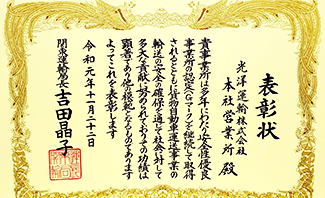 表彰状
光洋運輸株式会社
本社営業所 殿
貴事業所は多年にわたり安全性優良
事業所の認定へのマークを継続して取得
されるとともに貨物自動車運送事業の
輸送の安全の確保を通して社会に対して
多大な貢献に努められておりその功績は
顕著であり他の模範となるものであります
よってこれを表彰します
令和元年十一月二十二日
関東運輸局長 吉田晶子